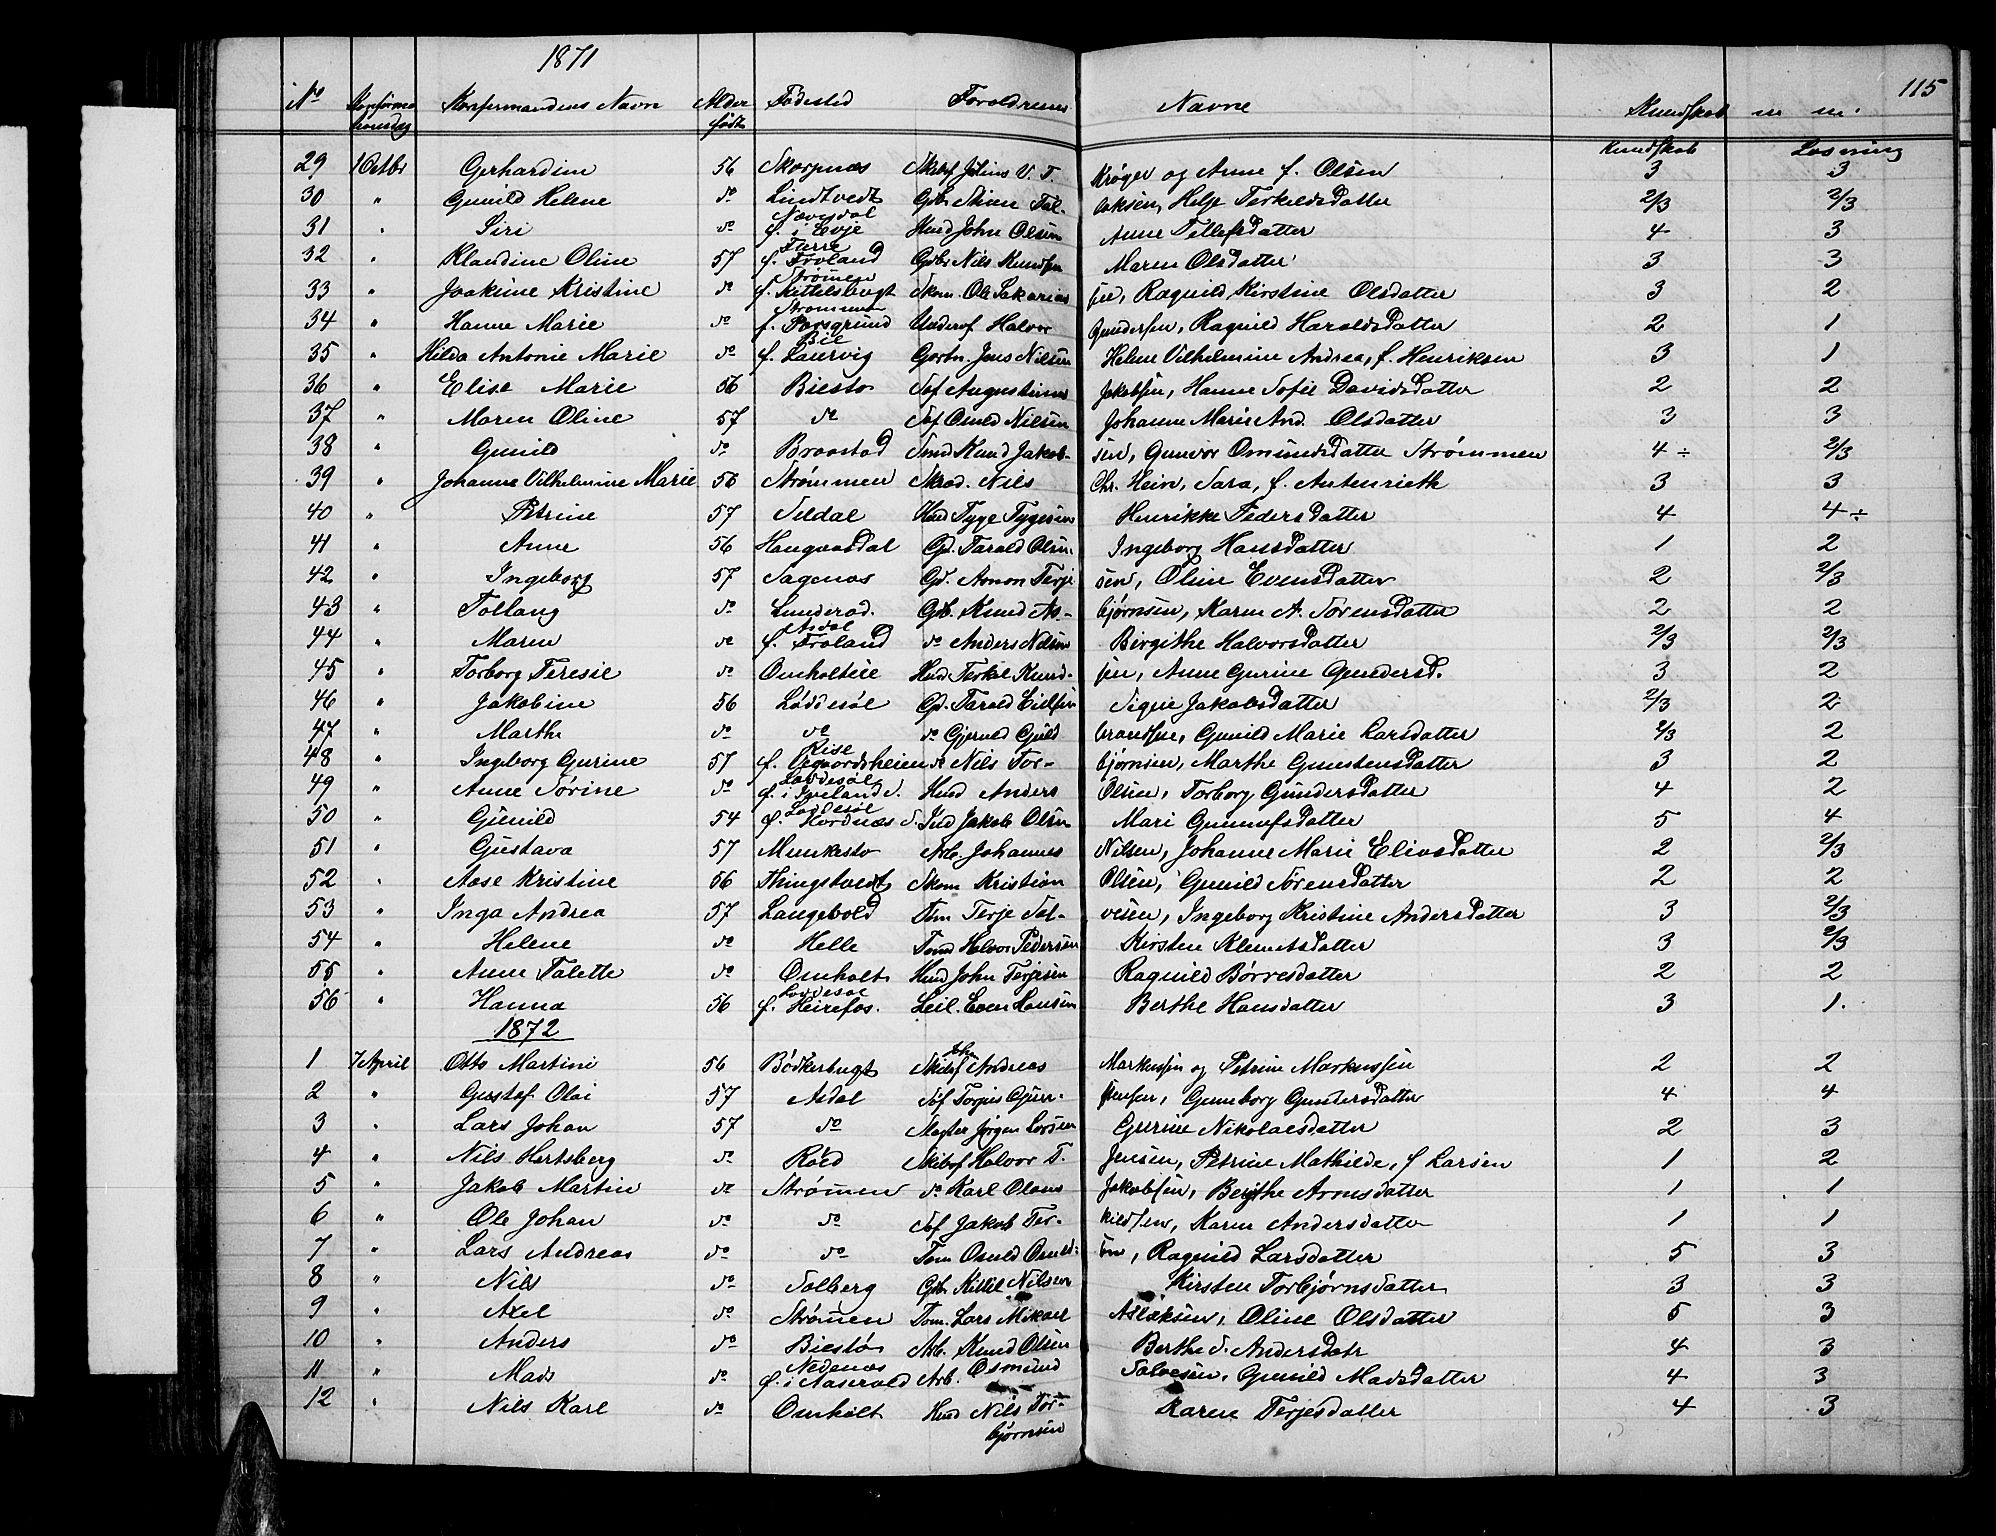 1871
115
No Konfirmationsdag Konfirmandens Navn Alder født Fødested Forældrenes Navne Kundskab m m.
Kundskab Læsning
29 1 Octbr Gerhardine 56 Skarpnæs Skibsf Julius V. T. Krøger og Anne f. Olsen 3 3
30 " Gunild Helene do Lindtvedt Gdbr Stien Tal- laksen, Helje TerkildsDatter 2/3 2/3
31 " Siri do f. i Evje Husm John Olsen Anne TellefsDatter 4 3
32 " Klaudine Oline 57 Furre f. Froland Gdbr Nils Knudsen Maren Olsdatter 3 3
33 " Joakime Kristine do Strømen f. Kittelsbugt Skom. Ole Sakarias sen, Ragnild Kirstine Olsdatter 3 2
34 " Hanne Marie do Strømmen f. Porsgrund Underof Halvor Gundersen, Ragnild HaroldsDatter 2 1
35 " Hilda Antonie Marie do Bie f. Laurvig Gartn. Jens Nilsen Helene Vilhelmine Andrea, f. Henriksen 3 1
36 " Elise Marie 56 Biestø Søf Augustinus Jakobsen, Hanne Sofie DavidsDatter 2 2
37 " Maren Oline 57 do Søf Osuld Nilsen Johanne Marie And. Olsdatter 3 3
38 " Gunild do Braastad Smed Knud Jakob- sen, Gunvor OmundsDatter Strømmen 4 ÷ 2/3
39 " Johanne Vilhelmine Marie 56 Strømmen Skræd. Nils Chr. Hein, Sara, f. Autenrieth 3 3
40 " Petrine 57 Seldal Husm Tyge Tygesen Henrikke PedersDatter 4 4 ÷
41 " Anne 56 Haugaasdal Gd. Tarald Olsen. Ingeborg Hansdatter 1 2
42 " Ingeborg 57 Sagenæs Gd. Arnon Terje sen, Oline EvensDatter 2 2/3
43 " Tollaug do Lunderød. Gdb. Knud As- bjørnsen, Karen A. SørensDatter 2 2
44 " Maren do Asdal f. Froland do Anders Nilsen Birgithe Halvorsdatter 2/3 2/3
45 " Torborg Teresie do Omholteie Husm Terkel Knud- sen, Anne Gurine GundersD. 3 2
46 " Jakobine 56 Løddesøl Gd. Tarald Eilefsen Signe JakobsDatter 2/3 2
47 " Marthe do do do Gjeruld Guld brandsen, Gunild Marie Larsdatter 2/3 2
48 " Ingeborg Gurine 57 Rise f. Vegaardsheien do Nils Tor- bjørnsen, Marthe GunstensDatter 3 2
49 " Anne Sørine do Løddesøl f. i Iveland Husm Anders Olsen, Torborg GundersDatter 4 2
50 " Gunild 54 Løddesøl f. Hordnæs S. Ind Jakob Olsen Mari GunnufsDatter 5 4
51 " Gustava 57 Munkestø Arb. Johannes Nilsen, Johanne Marie EliasDatter 2 2/3
52 " Aase Kristine 56 Thingstvedt Skom Kristian Olsen, Gunild SørensDatter 2 2
53 " Inga Andrea 57 Langebold Tøm Terje Sal- vesen, Ingeborg Kristine AndersDatter 3 2/3
54 " Helene do Helle Tøms Halvor Pedersen Kirsten KlemetsDatter 3 2/3
55 " Anne Talette do Omholt Husm John Terjesen Ragnild Børresdatter 2 2
56 " Hanna 56 Løddesøl f. Heirefos. Leil. Even Hansen Berthe Hansdatter 3 1.
1872
1 7 April Otto Martini 56 Bødkerbugt Skibsf John Andreas Markussen og Petrine Markussen 2 2
2 " Gustaf Olai 57 Asdal Søf Torjus Gun- stensen, Gunneborg GundersDatter 4 4
3 " Lars Johan 57 do Mægler Jørgen Larsen Gurine Nikolaesdatter 2 3
4 " Nils Hertsberg do Røed Skibsf Halvor T. Jensen, Petrine Mathilde, f Larsen 1 2
5 " Jakob Martin do Strømen do Karl Olaus Jakobsen, Berthe Arnesdatter 1 1
6 " Ole Johan do do Søf Jakob Ter- kildsen, Karen Andersdatter 1 1
7 " Lars Andreas do do Tøm Osuld Osuld- sen, Ragnild Larsdatter 5 3
8 " Nils do Solberg Gdb. Kittil Nilsen Kirsten TorbjørnsDatter 3 3
9 " Axel do Strømen Tøm. Lars Mikael Aslaksen, Oline Olsdatter 5 3
10 " Anders do Biestø Arb. Knud Olsen Berthe S. AndersDatr 4 3
11 " Mads do Nedenæs f. i Naserald Arb. Osmund Salvesen, Gunild Madsdatter 4 3
12 " Nils Karl do Omholt Husm Nils Tor- bjørnsen Karen Terjesdatter 4 3